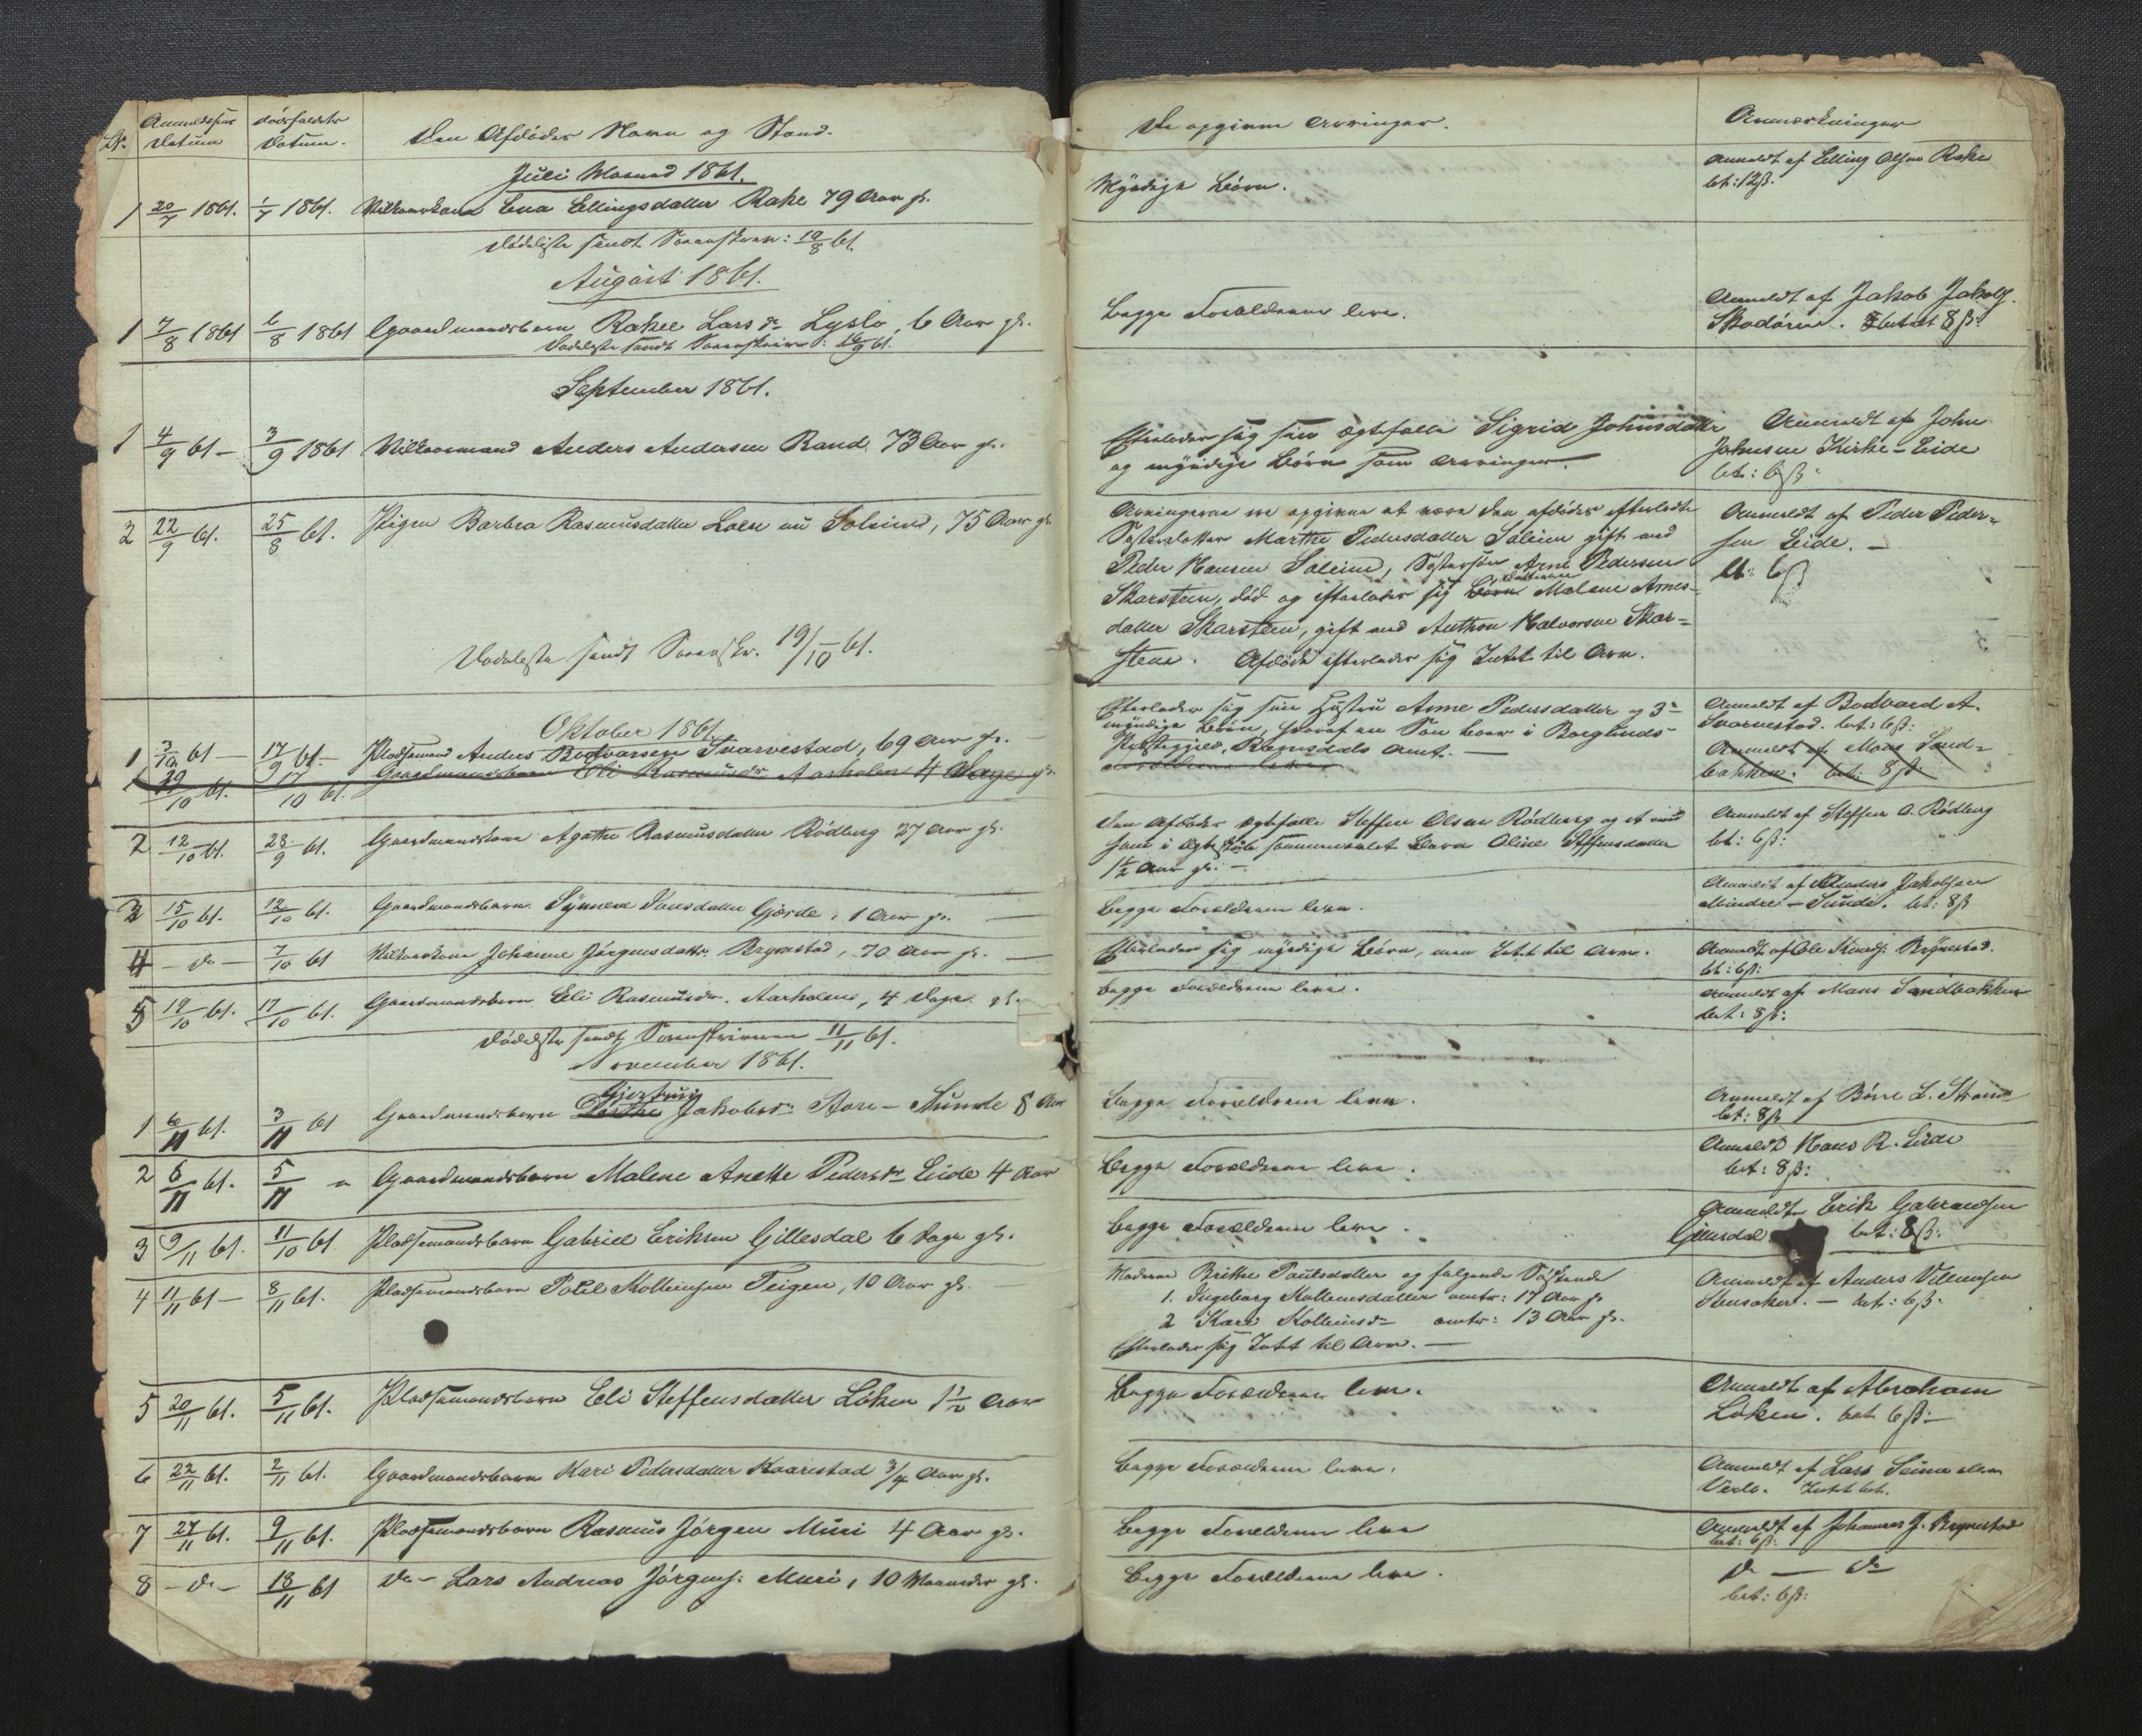 No. Anmeldelses Datum dødsfaldets Datum. Den Afdødes Navn og Stand. De opgivne Arvinger. Anmærkninger
Juli Maaned 1861.
1 20/7 1861. 1/7 1861. Vilkaarskone Lena Ellingsdatter Rake 79 Aar gl. Myndige Børn. Anmeldt af Elling Olsen Rake
bet: 12ß.
Dødsliste sendt Sorenskriv: 19/8 61.
August 1861.
1 7/8 1861 6/8 1861 Gaardmandsbarn Rakel Lars Dr Lyslo, 6 Aar gl. Begge Forældrene leve. Anmeldt af Jakob Jakobs.
Skodøien. betalt 8ß.
Dødsliste sendt Sorenskriver: 16/9 61.
September 1861.
1 4/9 61 – 3/9 1861 Vilkaarsmand Anders Andersen Rand 73 Aar gl. Efterlader sig sin Ægtefælle Sigrid Johnsdatter
og myndige Børn som Arvinger. Anmeldt af John
Johnsen Kirke-Eide
bet: 6ß
2 22/9 61. 25/8 61. Pigen Barbra Rasmusdatter Loen nu Soleim, 75 Aar gl. Arvingerne ere opgivne at være den afdødes efterladte
Søsterdatter Marthe Pedersdatter Soleim gift med
Peder Hansen Soleim, Søstersøn Arne Pedersen
Skarsteen, død og efterlader sig Børn Datteren Malene Arnes-
datter Skarsteen, gift med Anthon Halvorsen Skar-
steen. Afdøde efterlader sig Intet til Arv.
Anmeldt af Peder Peder-
sen Eide. –
bt: 6ß
Dødsliste sendt Sorenskr. 19/10 61.
Oktober 1861.
1 3/10 61 – 17/9 61 – Pladsemand Anders Bodvarsen Tvarvestad, 69 Aar gl. – Efterlader sig sin Hustru Anne Pedersdatter og 3
myndige Børn, hvoraf en Søn boer i Borglunds
Præstegjeld, Romsdals Amt. –
Anmeldt af Bodvard A.
Tvarvestad. bet: 6ß:
19/10 61. 17/10 61. Gaardmandsbarn Eli Rasmusdr Aarholen 4 Dage gl. Forældrene lever
Anmeldt af Mons Sand-
bakken. bet: 8ß.
2 12/10 61. 28/9 61. Gaardmandskone Agathe Rasmusdatter Rødberg 27 Aar gl. Den Afdødes Ægtefælle Steffen Olsen Rødberg og et med
ham i Ægteskab sammenavlet Barn Oline Steffensdatter
1½ Aar gl. –
Anmeldt af Steffen O. Rødberg
bet: 6ß:
3 15/10 61. 12/10 61. Gaardmandsbarn Synneve Jonsdatter Gjørde, 1 Aar gl. – Begge Forældrene leve. Anmeldt af Anders Jakobsen
Mindre-Sunde. bet: 8ß
4 – Do – 7/10 61 Vilkaarskone Johanne Jørgensdatter Brynestad, 70 Aar gl. – Efterlader sig myndige Børn, men Intet til Arv. Anmeldt af Ole Knuds. Brynestad.
bt: 6ß:
5 19/10 61. 17/10 61. Gaardmandsbarn Eli Rasmusdr. Aarholen, 4 Dage gl. Begge Forældrene leve. Anmeldt af Mons Sandbakken
bet: 8ß:
Dødsliste sendt Sorenskriveren 11/11 61.
November 1861.
1 6/11 61. 3/11 61 Gaardmandsbarn Gjertrui Jakobsdr Store-Sunde 8 Aar Begge Forældrene leve. Anmeldt af Børre L. Strand
bet: 8ß
2 6/11 61. 5/11 " Gaardmandsbarn Malene Anette Pedersdr Eide 4 Aar Begge Forældrene leve. Anmeldt Hans R. Eide
bet: 8ß:
3 9/11 61. 11/10 61 Pladsemandsbarn Gabriel Eriksen Gillesdal 6 Dage gl. Begge Forældrene leve. Anmeldt Erik Gabrielsen
bet: 8ß:
4 11/11 61 – 8/11 61. Pladsemandsbarn Povel Kolbeinsen Teigen, 10 Aar gl. Moderen Brithe Paulsdatter og følgende Søskende
1. Ingeborg Kolbeinsdatter omtr: 17 Aar gl
2 Kari Kolbeinsdr omtr: 13 Aar gl.
Efterlader sig Intet til Arv. –
Anmeldt af Anders Villumsen
Stensaker. – bet: 6ß.
5 20/11 61. 5/11 61. Pladsemandsbarn Eli Steffensdatter Løken 1½ Aar Begge Forældrene leve. Anmeldt af Abraham
Løken. bet 6ß: –
6 22/11 61. 2/11 61. Gaardmandsbarn Kari Pedersdatter Kaarestad ¾ Aar gl. Begge Forældrene leve. Anmeldt af Lars
Intet bet.
7 27/11 61. 9/11 61. Pladsemandsbarn Rasmus Jørgen Muri 4 Aar gl. Begge Forældrene leve Anmeldt af Johannes J. Brynestad
bet: 6ß:
8 – Do – 18/11 61 Do – Lars Andreas Jørgens: Muri, 10 Maaneder gl. Begge Forældrene leve. Do — Do
bet: 6ß: